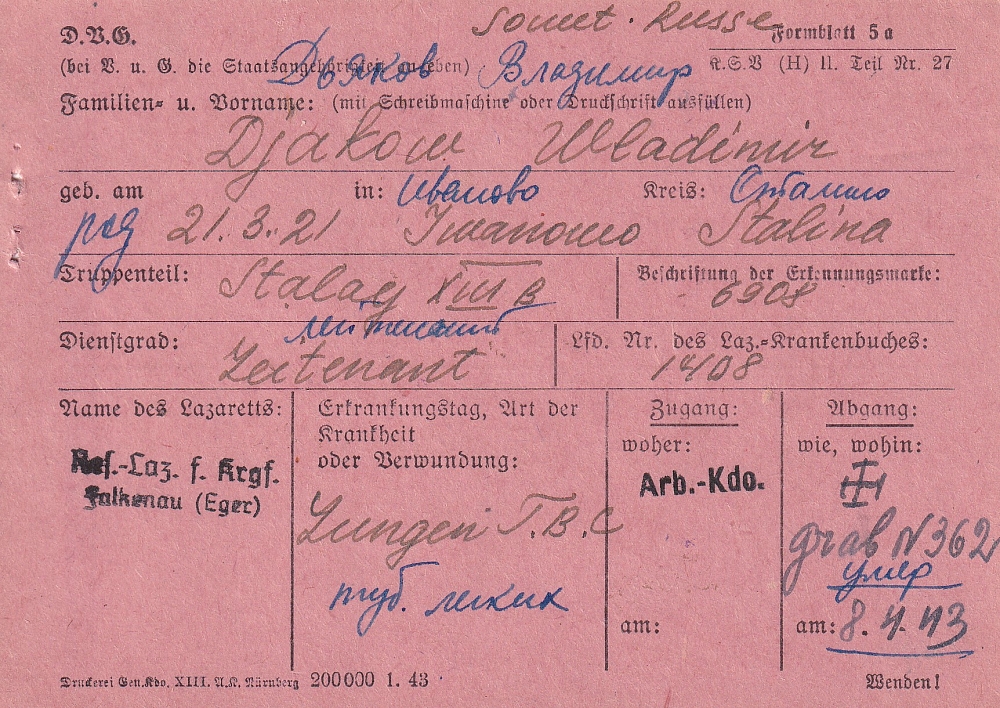 Sowet. Russe
D.V.G.
Formblatt 5a
(bei V. u. G. die Staatsangehörigkeit angeben)
Дьяков Владимир
K.S.V (H) II. Teil Nr. 27
Familien- u. Vorname: (mit Schreibmaschine oder Druckschrift ausfüllen)
Djakow Wladimir
geb. am in: Иваново Kreis: Сталино
род 21.3.21 Iwanowo Stalina
Truppenteil: Stalag XIII B
Beschriftung der Erkennungsmarke:
6908
лейтенант
Dienstgrad: Leitenant
Lfd. Nr. des Laz.-Krankenbuches:
1408
Name des Lazaretts:
Res.-Laz. f. Krgf.
Falkenau (Eger)
Erkrankungstag, Art der
Krankheit
oder Verwundung:
Lungen T.B.C
туб. легких
Zugang:
woher:
Arb.-Kdo.
am:
Abgang:
wie, wohin:
grab N 362
умер
am: 8.4.43
Druckerei Gen.Kdo. XIII. A.K. Nürnberg 200000 1. 43
Wenden!